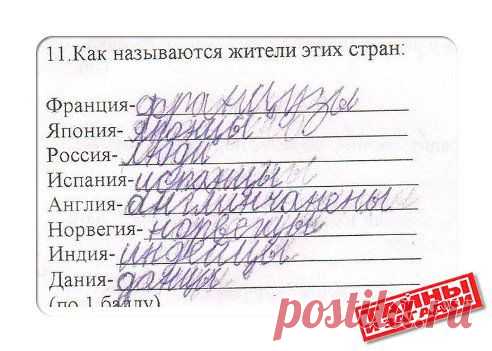 11.Как называются жители этих стран:
Франция-французы
Япония-японцы
Россия-люди
Испания-испанцы
Англия-англичанены
Норвегия-норвегцы
Индия-индейцы
Дания-данцы
(по 1 баллу)
ТАЙНЫ
И ЗАГАДКИ
postila.ru